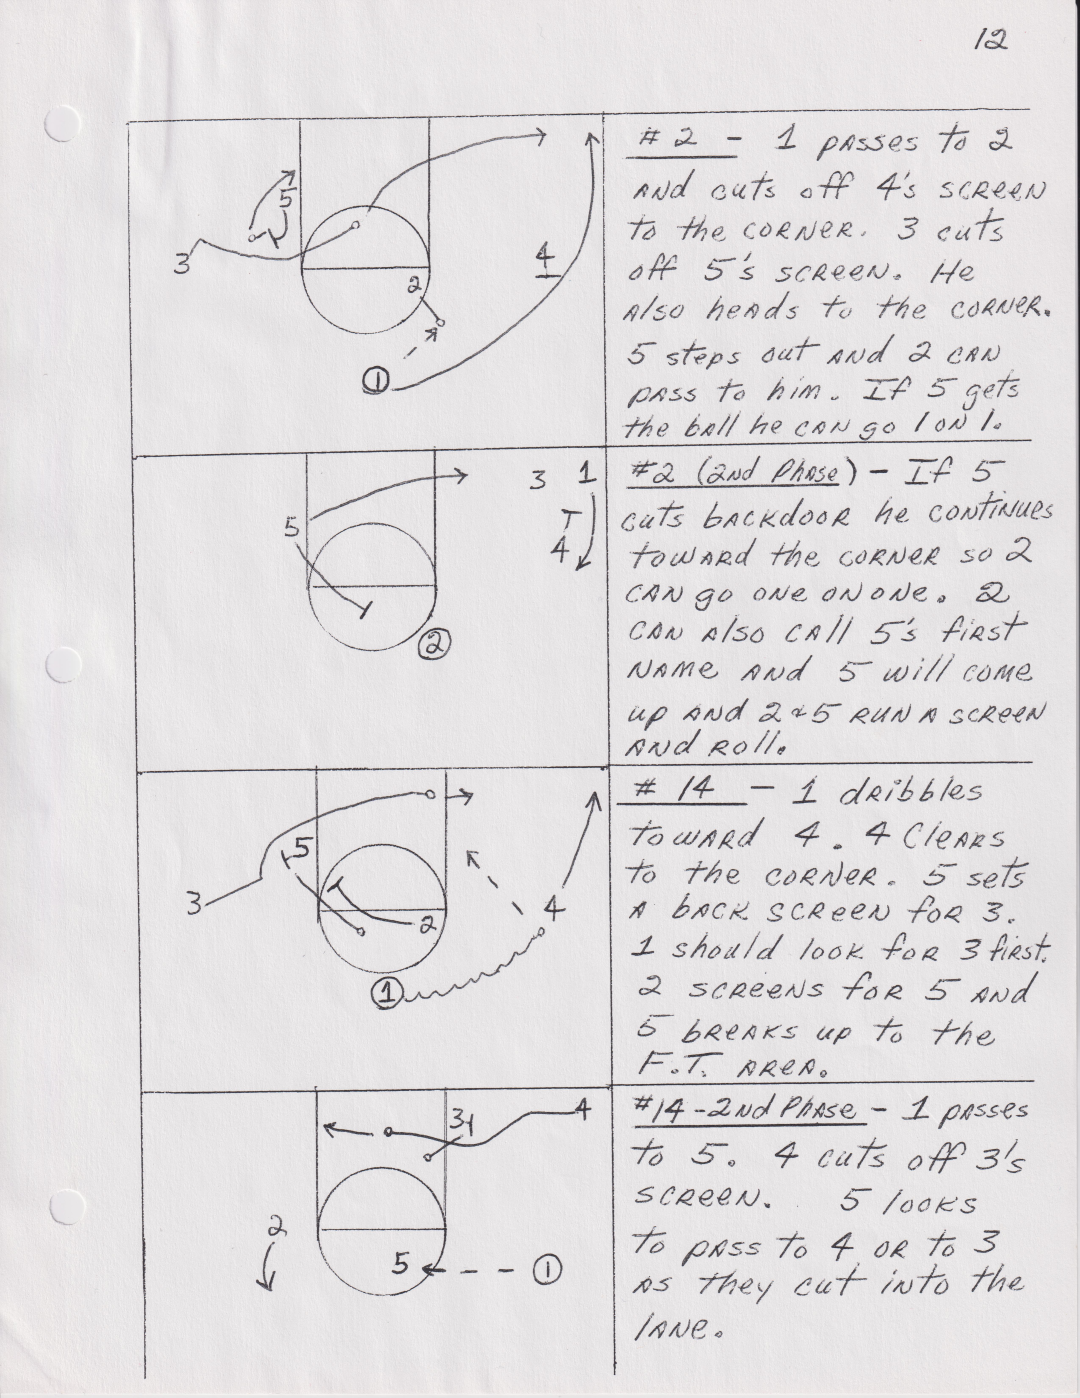 12
# 2 - 1 passes to 2
and cuts off 4's screen
to the corner. 3 cuts
off 5's screen. He
also heads to the corner.
5 steps out and 2 can
pass to him. If 5 gets
the ball he can go 1 on 1.
5
3
4
2
1
#2 (2nd Phase) - If 5
cuts backdoor he continues
toward the corner so 2
can go one on one. 2
can also call 5's first
name and 5 will come
up and 2 & 5 run a screen
and roll.
3 1
5
4
2
# 14 - 1 dribbles
toward 4. 4 clears
to the corner. 5 sets
a back screen for 3.
1 should look for 3 first.
2 screens for 5 and
5 breaks up to the
F.T. area.
5
3
4
2
1
#14-2nd Phase - 1 passes
to 5. 4 cuts off 3's
screen. 5 looks
to pass to 4 or to 3
as they cut into the
lane.
3
4
2
5
1